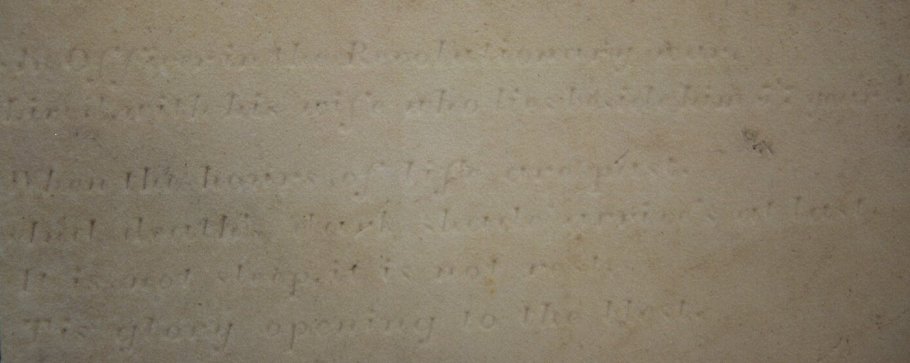 An Officer in the Revolutionary war.
lived with his wife who lies beside him 57 years
When the hours of life are past
And death's dark shade arrives at last
It is not sleep, it is not rest
Tis glory opening to the blest.